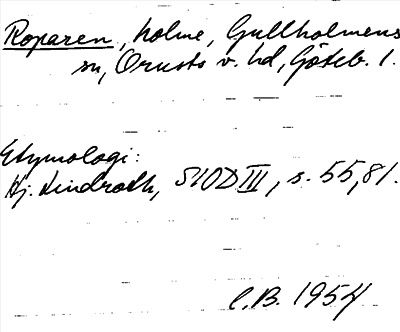 Roparen, holme, Gullholmens
sn, Orusts v. hd, Göteb. l.
Etymologi:
Hj. Lindroth, SIOD III, s. 55, 81.
C.B. 1954